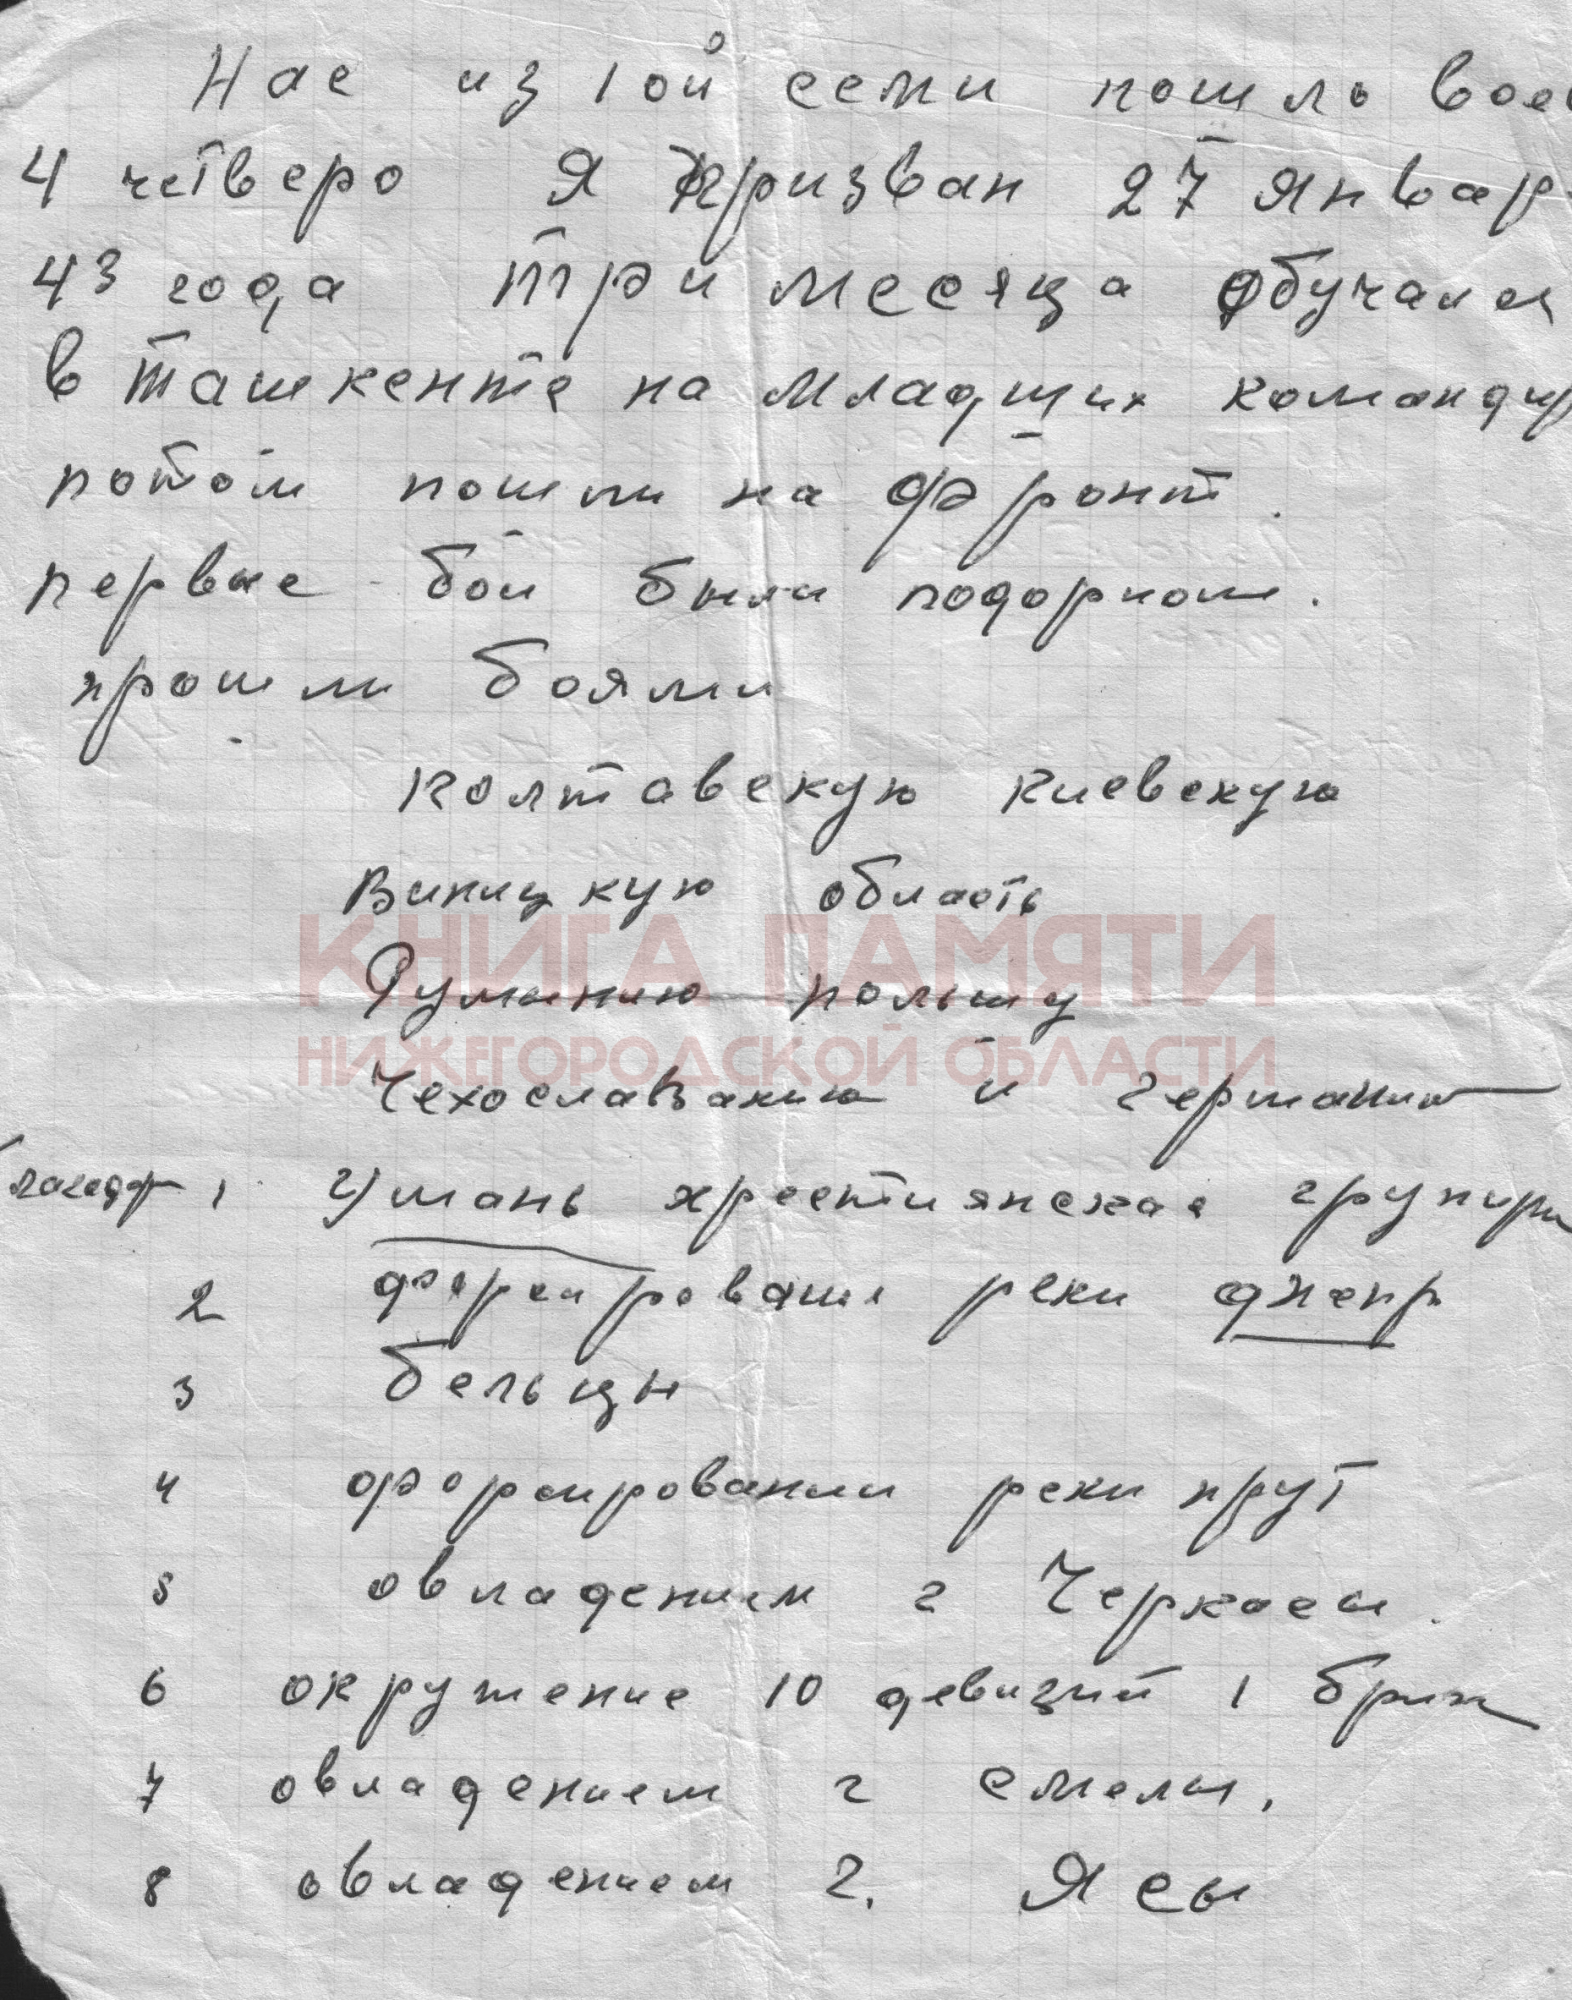 Нас из 1ой семи пошло вое
4 четверо я призван 27 январ
43 года три месяца обучался
в ташкенте на младших командир
потом пошли на фронт.
первые бои были подорном.
прошли боями
полтавскую киевскую
Виницкую область
Румынию польшу
КНИГА ПАМЯТИ
НИЖЕГОРОДСКОЙ ОБЛАСТИ
Чехославакию и германию
1 Умань хрестиянская групир
2 форсирования реки днепр
3 бельцы
4 форсировании реки прут
5 овладением г Черкасы.
6 окружение 10 девизий 1 бриг
7 овладением г смелы.
8 овладением г. Ясы